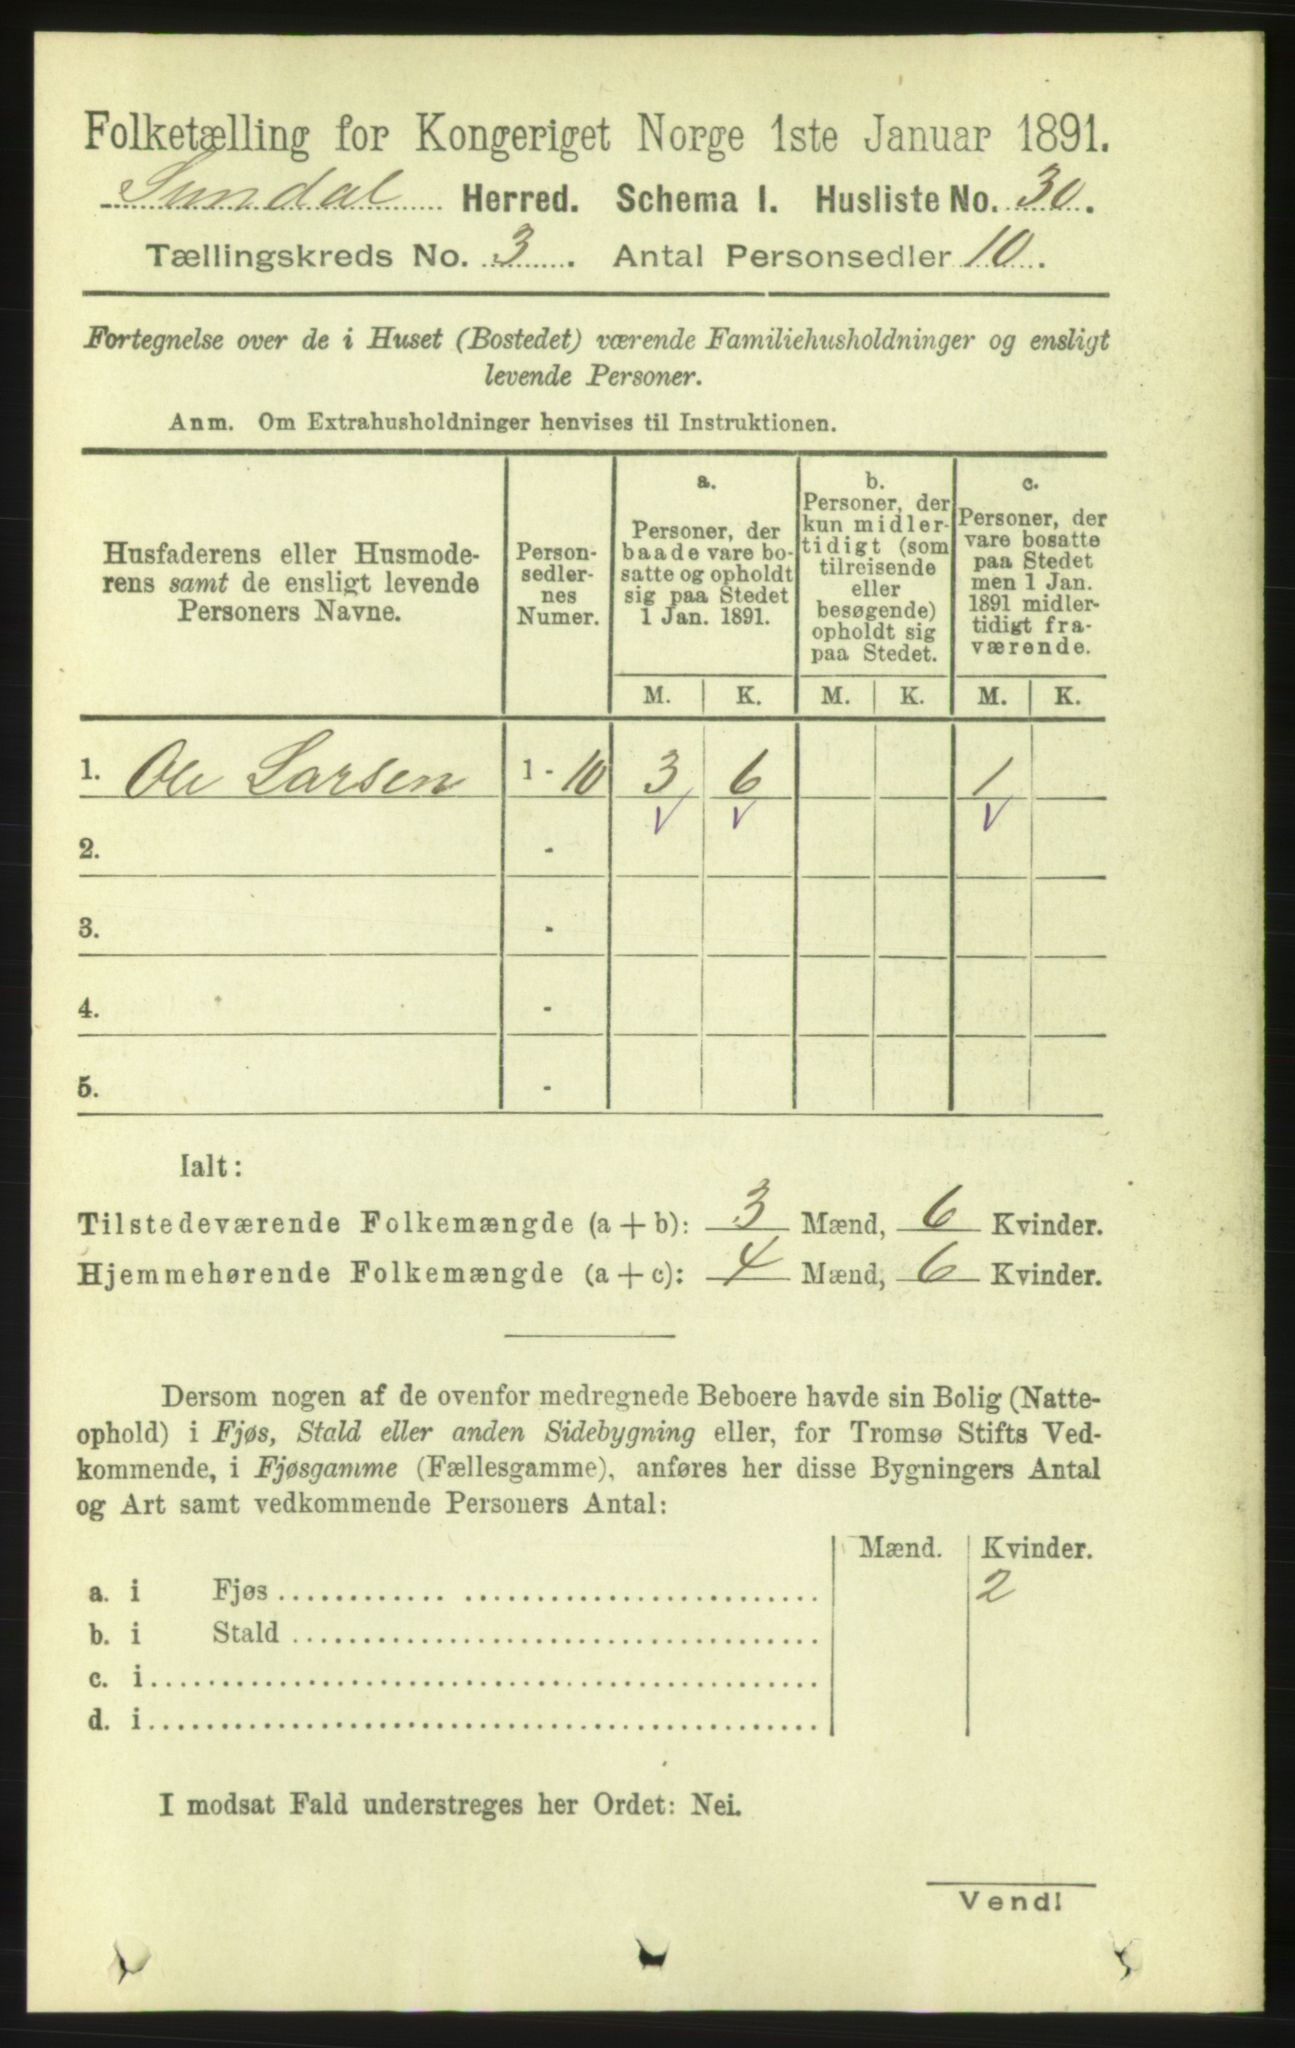 Folketælling for Kongeriget Norge 1ste Januar 1891.
Sundal Herred. Schema I. Husliste No. 30.
Tællingskreds No. 3. Antal Personsedler 10.
Fortegnelse over de i Huset (Bostedet) værende Familiehusholdninger og ensligt
levende Personer.
Anm. Om Extrahusholdninger henvises til Instruktionen.
Husfaderens eller Husmode-
rens samt de ensligt levende
Personers Navne.
Person-
sedler-
nes
Numer.
a.
Personer, der
baade vare bo-
satte og opholdt
sig paa Stedet
1 Jan. 1891.
b.
Personer, der
kun midler-
tidigt (som
tilreisende
eller
besøgende)
opholdt sig
paa Stedet.
c.
Personer, der
vare bosatte
paa Stedet
men 1 Jan.
1891 midler-
tidigt fra-
værende.
M. K. M. K. M. K.
1. Ole Larsen 1 - 10 3 6 1
2. -
3. -
4. -
5. -
Ialt:
Tilstedeværende Folkemængde (a + b): 3 Mænd, 6 Kvinder.
Hjemmehørende Folkemængde (a + c): 4 Mænd, 6 Kvinder.
Dersom nogen af de ovenfor medregnede Beboere havde sin Bolig (Natte-
ophold) i Fjøs, Stald eller anden Sidebygning eller, for Tromsø Stifts Ved-
kommende, i Fjøsgamme (Fællesgamme), anføres her disse Bygningers Antal
og Art samt vedkommende Personers Antal:
Mænd. Kvinder.
a. i Fjøs 2
b. i Stald
c. i
d. i
I modsat Fald understreges her Ordet: Nei.
Vend!